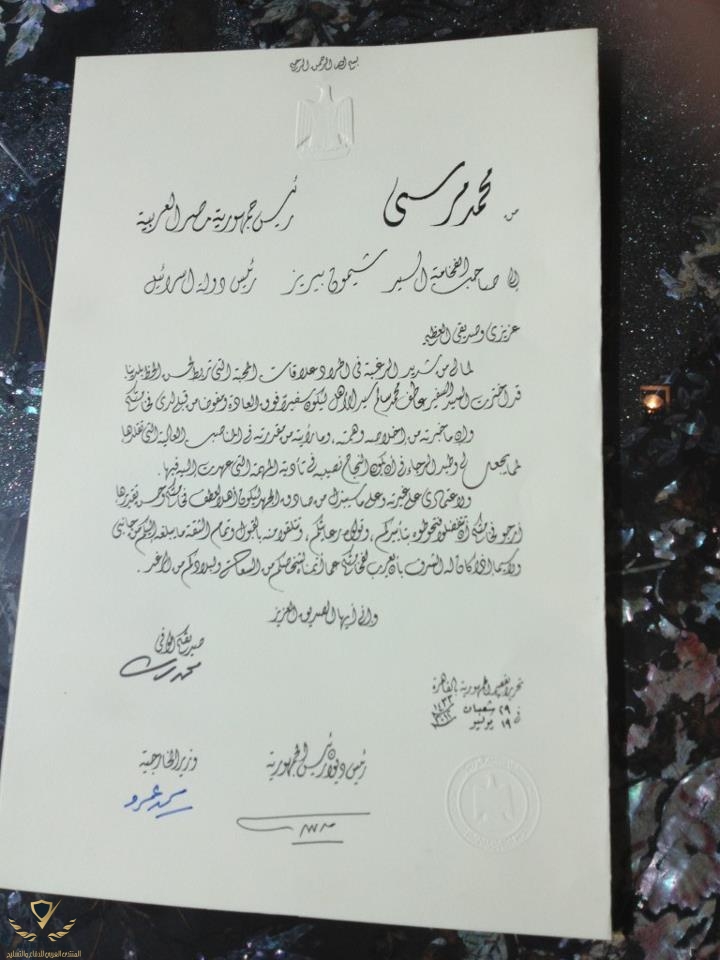 بسم الله الرحمن الرحيم
من محمد مرسى رئيس جمهورية مصر العربية
إلى صاحب الفخامة السيد شيمون بيريز رئيس دولة اسرائيل
عزيزى وصديقى العظيم
لما لى من شديد الرغبة فى اطراد علاقات المحبة التى تربط لحسن الحظ بلدينا
قد اخترت السيد السفير عاطف محمد سالم سيد الأهل ليكون سفيرا فوق العادة ومفوضا من قبلى لدى فخامتكم
وإن ما خبرته من إخلاصه وهمته ، وما رأيته من مقدرته فى المناصب العالية التى تقلدها
لمما يجعل لى وطيد الرجاء فى أن يكون النجاح نصيبه فى تأدية المهمة التى عهدت إليه فيها .
ولاعتمادى على غيرته وعلى ما سيبذل من صادق الجهد ليكون أهلا لعطف فخامتكم وحسن تقديرها
أرجو من فخامتكم أن تتفضلوا فتحوطوه بتأييدكم ، وتولوه رعايتكم ، وتتلقوا منه بالقبول وتمام الثقة ما يبلغه اليكم من جانبى
ولاسيما إذا كان له الشرف بأن يعرب لفخامتكم عما أتمناه لشخصكم من السعادة ولبلادكم من الرغد .
وإنى أيها الصديق العزيز
صديقكم الوفى
محمد مرسى
تحريرا بقصر الجمهورية بالقاهرة
فى ٢٩ شعبان ١٤٣٣
فى ١٩ يوليو ٢٠١٢
رئيس ديوان رئيس الجمهورية
وزير الخارجية
محمد عمرو
المنتدى العربي للدفاع والتسليح